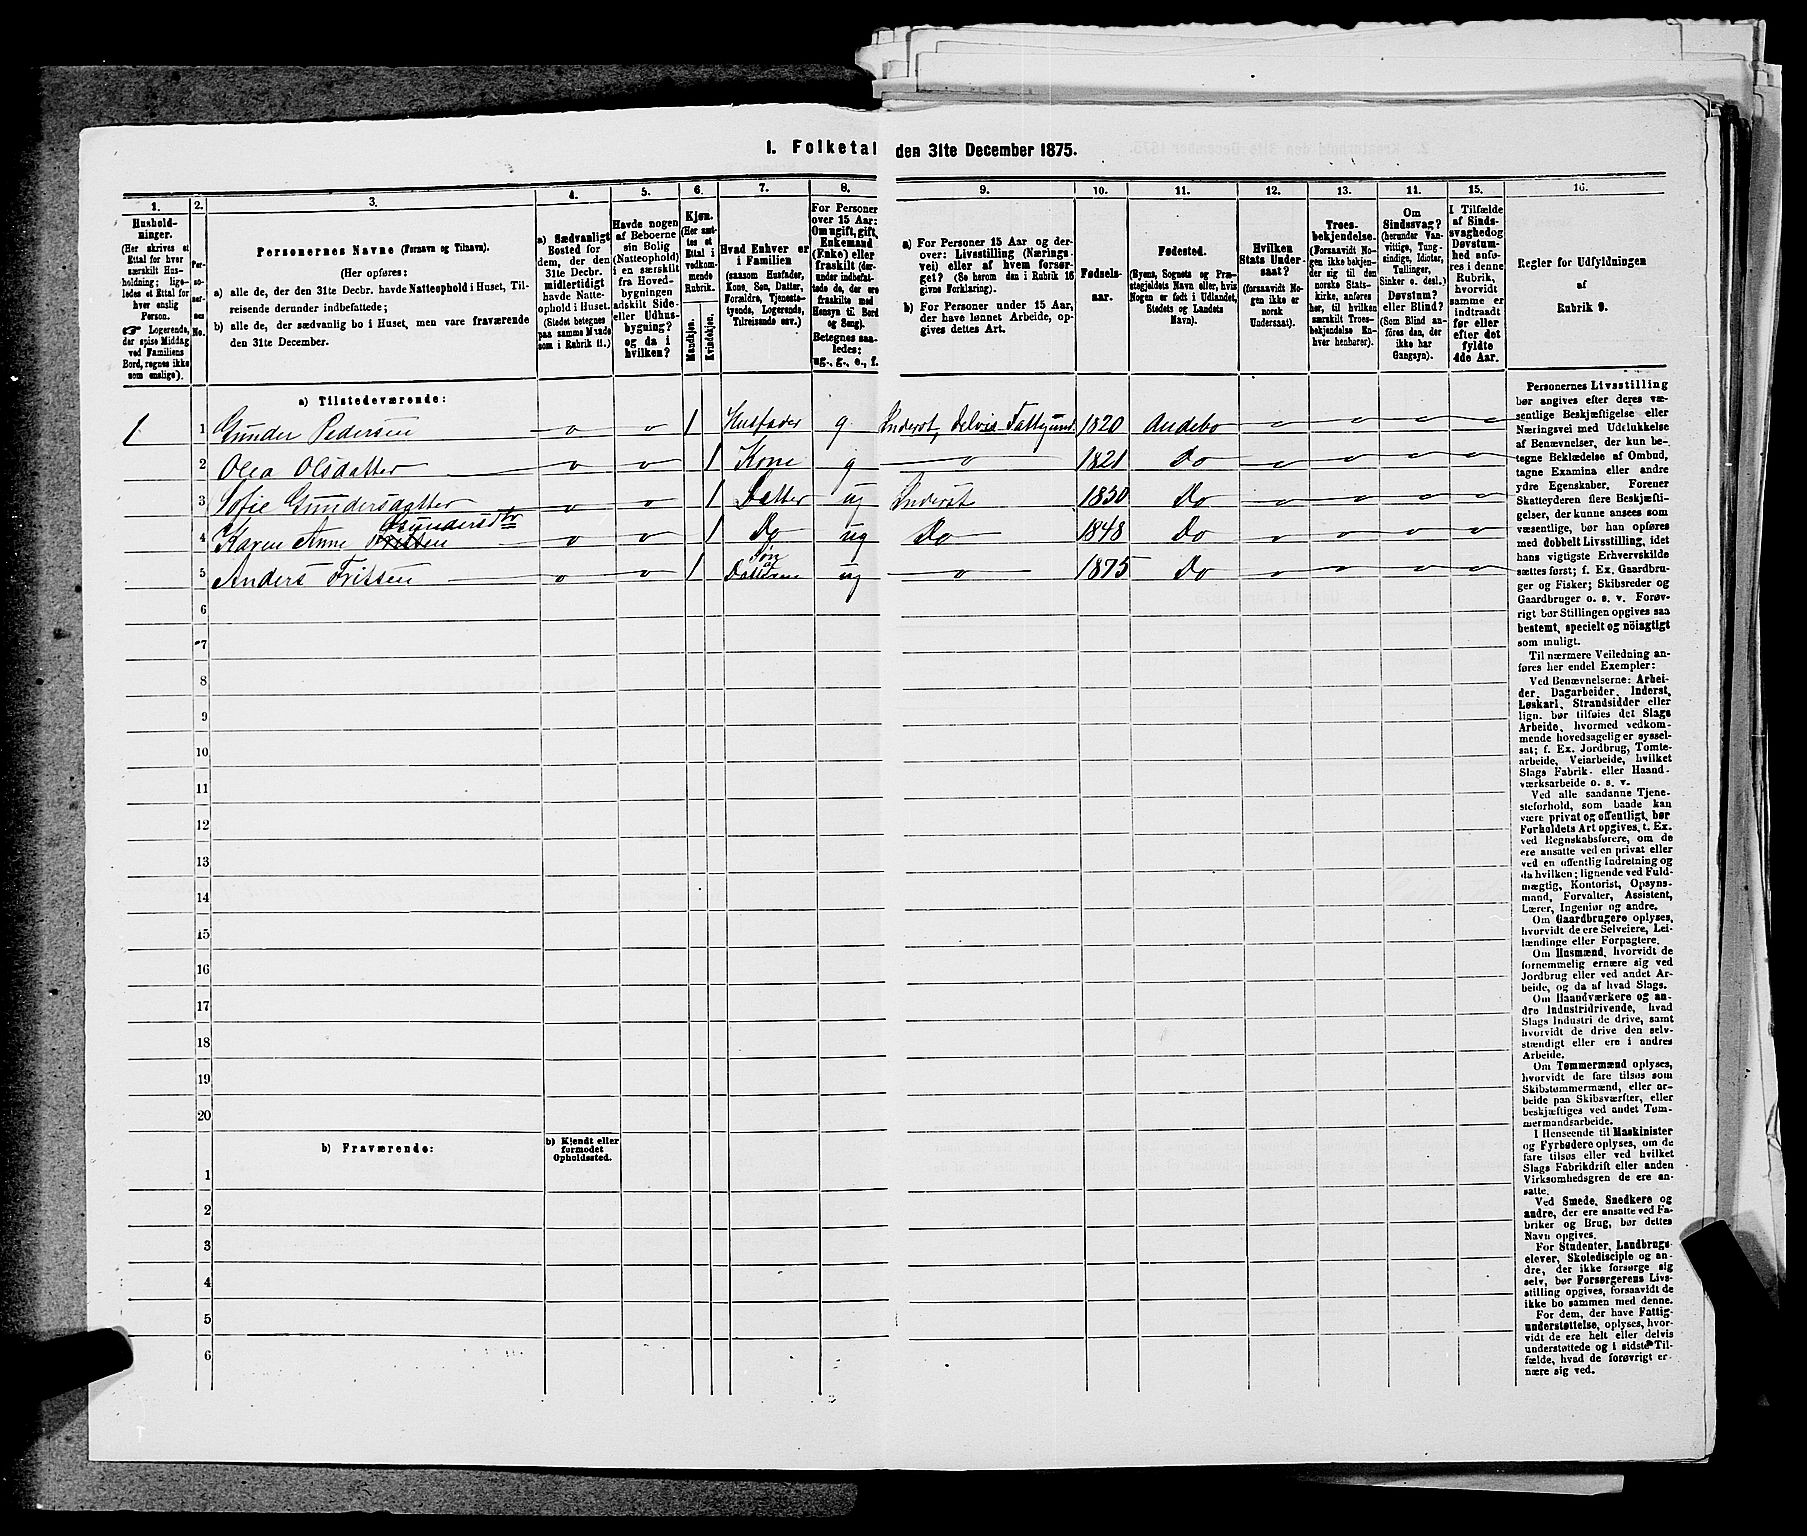 I. Folketal den 31te December 1875.
1.
Hushold-
ninger.
(Her skrives et
Ettal for hver
særskilt Hus-
holdning; lige-
ledes et Ettal for
hver enslig
Person.
☞ Logerende,
der spise Middag
ved Familiens
Bord, regnes ikke
som enslige).
2.
Per-
so-
ner-
nes
No.
3.
Personernes Navne (Fornavn og Tilnavn).
(Her opføres:
a) alle de, der den 31te Decbr. havde Natteophold i Huset, Til-
reisende derunder indbefattede;
b) alle de, der sædvanlig bo i Huset, men vare fraværende
den 31te December.
4.
a) Sædvanligt
Bosted for
dem, der den
31te Decbr.
midlertidigt
havde Natte-
ophold i Huset.
(Stedet betegnes
paa samme Maade
som i Rubrik 11.)
5.
Havde nogen
af Beboerne
sin Bolig
(Natteophold)
i en særskilt
fra Hoved-
bygningen
adskilt Side-
eller Udhus-
bygning?
og da i
hvilken?
6.
Kjøn.
(Her sæt-
tes et
Ettal i
vedkom-
mende
Rubrik.
Mandkjøn.
Kvindekjøn.
7.
Hvad Enhver er
i Familien
(saasom Husfader,
Kone, Søn, Datter,
Forældre, Tjeneste-
tyende, Logerende,
Tilreisende osv.)
8.
For Personer
over 15 Aar:
Om ugift, gift,
Enkemand
(Enke) eller
fraskilt (der-
under indbefat-
tede de, der ere
fraskilte med
Hensyn til Bord
og Seng).
Betegnes saa-
ledes:
ug., g., e., f.
9.
a) For Personer 15 Aar og der-
over: Livsstilling (Nærings-
vei) eller af hvem forsør-
get? (Se herom den i Rubrik 16
givne Forklaring.)
b) For Personer under 15 Aar,
der have lønnet Arbeide, op-
gives dettes Art.
10.
Fødsels-
aar.
11.
Fødested.
(Byens, Sognets og Præ-
stegjeldets Navn eller, hvis
Nogen er født i Udlandet,
Stedets og Landets
Navn).
12.
Hvilken
Stats Under-
saat?
(forsaavidt No-
gen ikke er
norsk
Undersaat).
13.
Troes-
bekjendelse.
(Forsaavidt No-
gen ikke bekjen-
der sig til den
norske Stats-
kirke, anføres
her, til hvilken
særskilt Troes-
bekjendelse En-
hver henhører).
14.
Om
Sindssvag?
(herunder Van-
vittige, Idioter,
Tullinger,
Sinker o. desl.)
Døvstum?
eller Blind?
(Som Blind an-
føres den, der
ikke har
Gangsyn).
15.
I Tilfælde
af Sinds-
svaghed og
Døvstum-
hed anfø-
res i denne
Rubrik,
hvorvidt
samme er
indtraadt
før eller
efter det
fyldte
4de Aar.
16.
Regler for Udfyldningen
af
Rubrik 9.
a) Tilstedeværende:
1 1 Gunder Pedersen o o 1 Husfader g Inderst, delvis Fattigund. 1820 Andebo o o o o
2 Olea Olsdatter o o 1 Kone g o 1821 Do o o o o
3 Sofie Gundersdatter o o 1 Datter ug Inderst 1850 Do o o o o
Gundersdtr
4 Karen Anne Fritsen o o 1 Do ug Do 1848 Do o o o o
5 Anders Fritsen o o 1 Søn af Datteren ug o 1875 Do o o o o
6
7
8
9
10
11
12
13
14
15
16
17
18
19
20
b) Fraværende:
b) Kjendt eller
formodet
Opholdssted.
1
2
3
4
5
6
Personernes Livsstilling
bør angives efter deres væ-
sentlige Beskjæftigelse eller
Næringsvei med Udelukkelse
af Benævnelser, der kun be-
tegne Beklædelse af Ombud,
tagne Examina eller andre
ydre Egenskaber. Forener
Skatteyderen flere Beskjæfti-
gelser, der kunne ansees som
væsentlige, bør han opføres
med dobbelt Livsstilling, idet
hans vigtigste Erhvervskilde
sættes først; f. Ex. Gaardbru-
ger og Fisker; Skibsreder og
Gaardbruger o. s. v. Forøv-
rigt bør Stillingen opgives saa
bestemt, specielt og nøiagtigt
som muligt.
Til nærmere Veiledning an-
føres her endel Exempler:
Ved Benævnelserne: Arbei-
der, Dagarbeider, Inderst,
Løskarl, Strandsidder eller
lign. bør tilføies det Slags
Arbeide, hvormed vedkom-
mende hovedsagelig er syssel-
sat; f. Ex. Jordbrug, Tomte-
arbeide, Veiarbeide, hvilket
Slags Fabrik- eller Haand-
værksarbeide o. s. v.
Ved alle saadanne Tjene-
steforhold, som baade kan
være privat og offentligt, bør
Forholdets Art opgives, t. Ex.
ved Regnskabsførere, om de
ere ansatte ved en privat eller
ved en offentlig Indretning og
da hvilken; lignende ved Fuld-
mægtig, Kontorist, Opsyns-
mand, Forvalter, Assistent,
Lærer, Ingeniør og andre.
Om Gaardbrugere oplyses,
hvorvidt de ere Selveiere, Lei-
lændinge eller Forpagtere.
Om Husmænd, hvorvidt de
fornemmelig ernære sig ved
Jordbrug eller ved andet Ar-
beide, og da af hvad Slags.
Om Haandværkere og an-
dre Industridrivende, hvad
Slags Industri de drive, samt
hvorvidt de drive den selv-
stændigt eller ere i andres
Arbeide.
Om Tømmermænd oplyses,
hvorvidt de fare tilsøs som
Skibstømmermænd, eller ar-
beide paa Skibsværfter, eller
beskjæftiges ved andet Tøm-
mermandsarbeide.
I Henseende til Maskinister
og Fyrbødere oplyses, om de
fare tilsøs eller ved hvilket
Slags Fabrikdrift eller anden
Virksomhedsgren de ere an-
satte.
Ved Smede, Snedkere og
andre, der ere ansatte ved Fa-
briker og Brug, bør dettes
Navn opgives.
For Studenter, Landbrugs-
elever, Skoledisciple og an-
dre, der ikke forsørge sig
selv, bør Forsørgerens Livs-
stilling opgives, forsaavidt de
ikke bo sammen med denne.
For dem, der have Fattig-
understøttelse, oplyses, hvor-
vidt de ere helt eller delvis
understøttede og i sidste Til-
fælde, hvad de forøvrigt er-
nære sig ved.